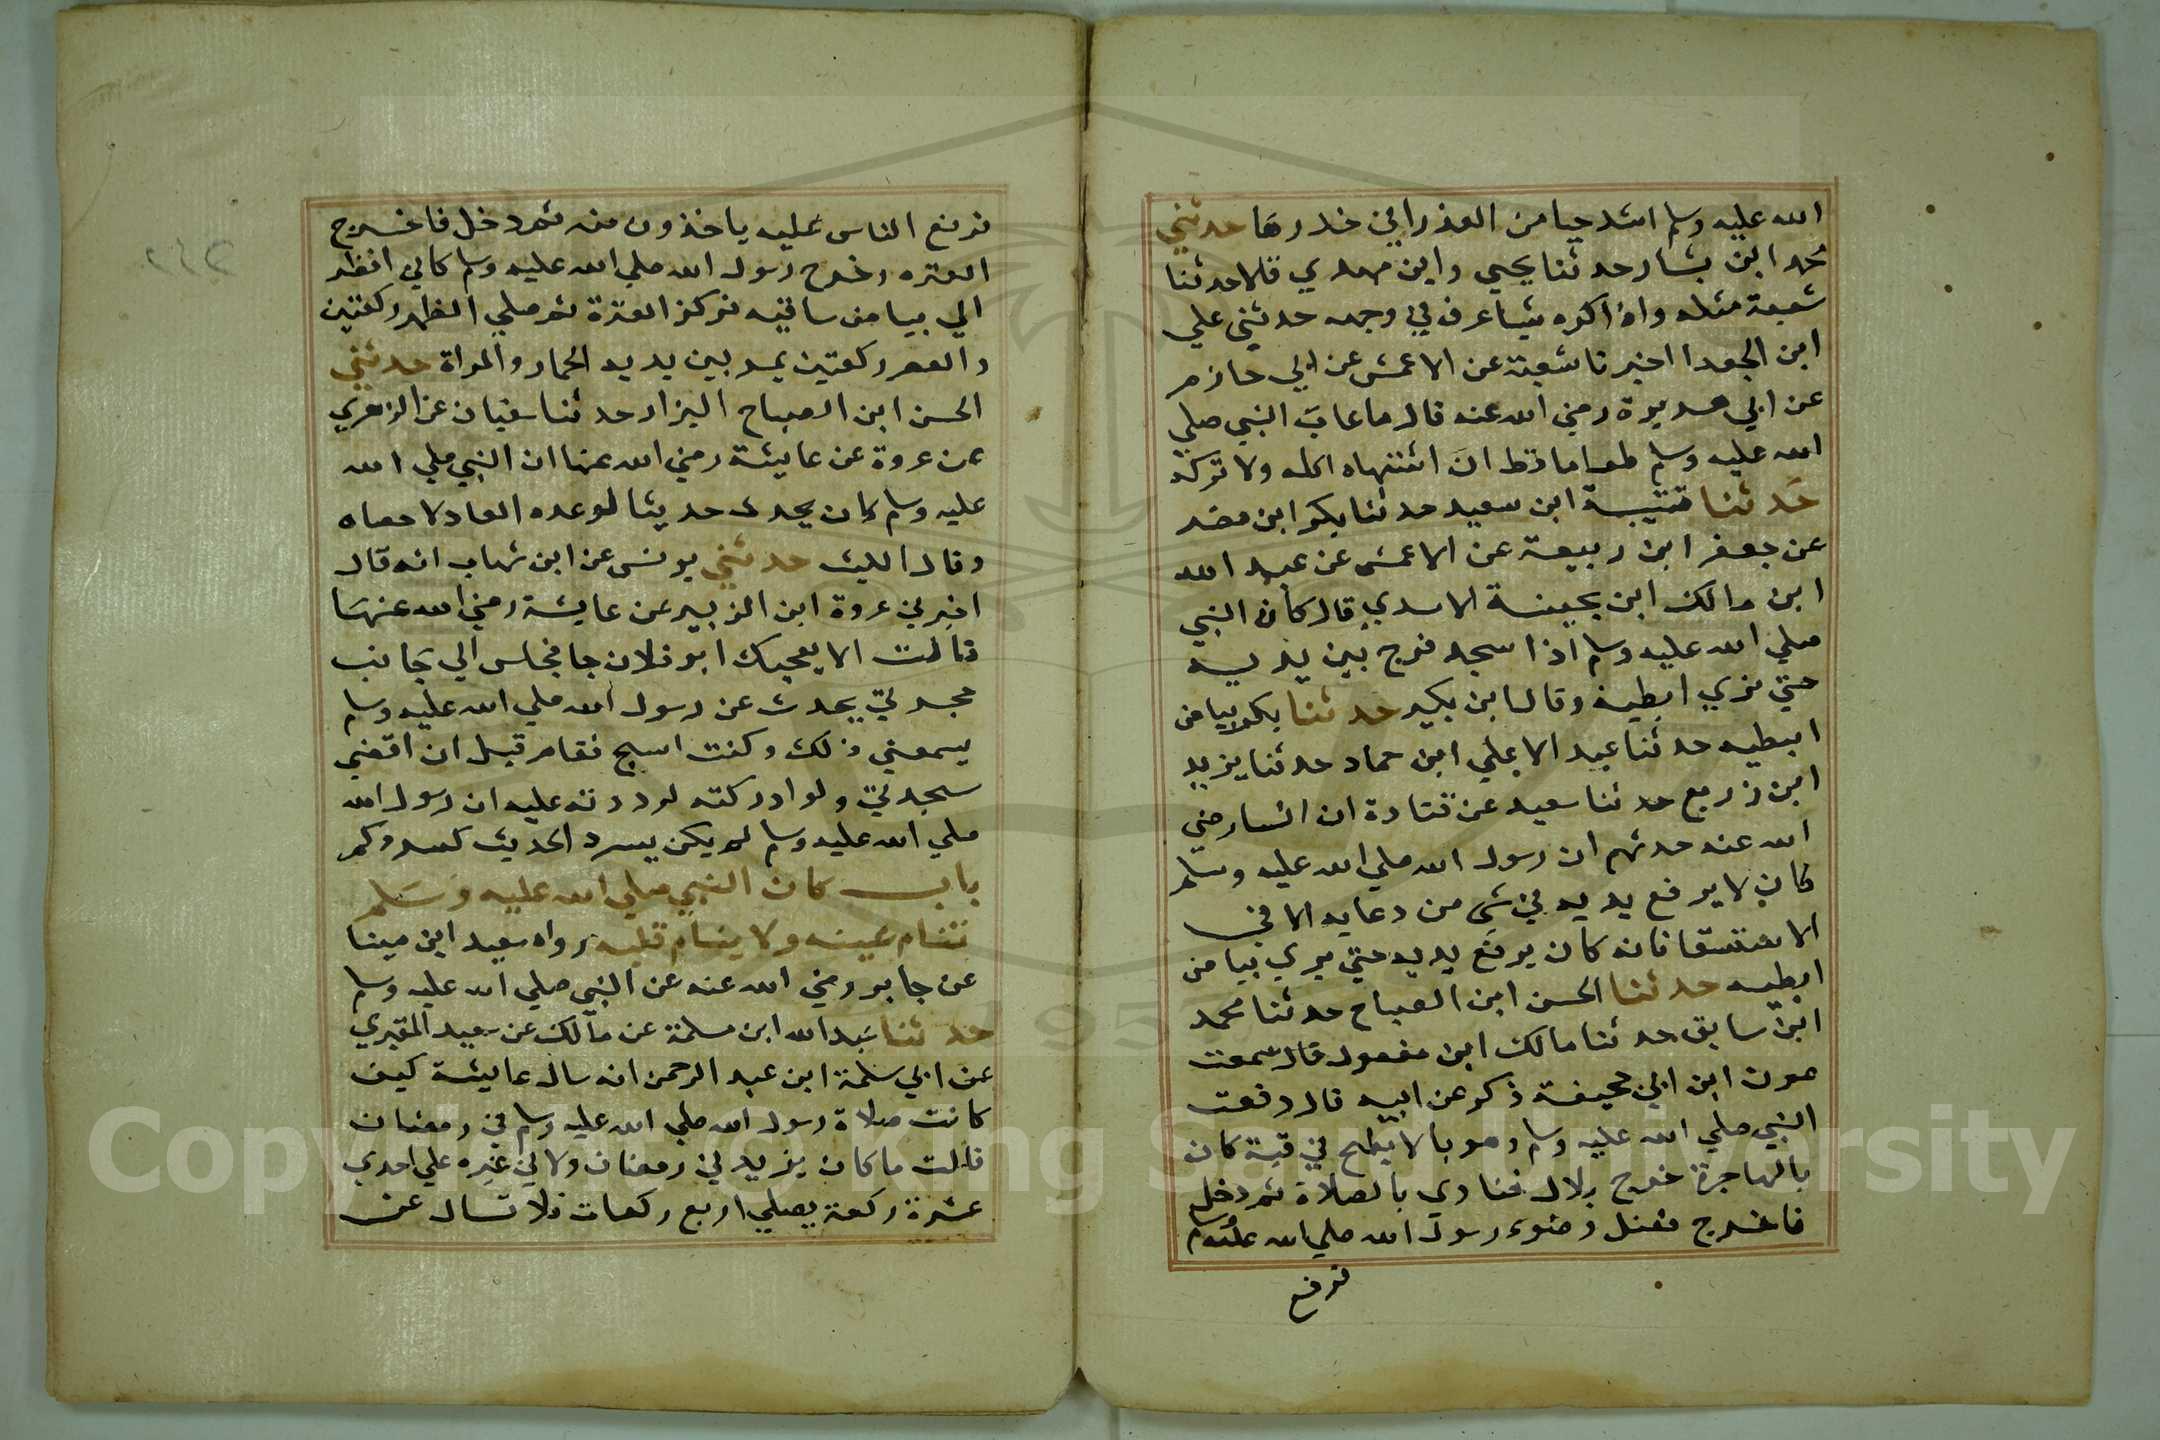 الله عليه وسلم اشد حيا من العذرا في خدرها حدثني
محمد ابن بشار حدثنا يحيي وابن مهدي قالا حدثنا
شعبة مثله واذا كره شيا عرف في وجهه حدثني علي
ابن الجعدا اخبرنا شعبة عن الاعمش عن ابي حازم
عن ابي هديرة رضي الله عنه قال ما عاب النبي صلي
الله عليه وسلم طعاما قط ان اشتهاه اكله ولا تركه
حدثنا قتيبة ابن سعيد حدثنا بكر ابن مضر
عن جعفر ابن ربيعة عن الاعمش عن عبد الله
ابن مالك ابن بحينة الاسدي قال كان النبي
صلي الله عليه وسلم اذا سجد فرج بين يديه
حتي نري ابطيه وقال ابن بكير حدثنا بكر بياض
ابطيه حدثنا عبد الاعلي ابن حماد حدثنا يزيد
ابن زريع حدثنا سعيد عن قتادة ان انسا رضي
الله عنه حدثهم ان رسول الله صلي الله عليه وسلم
كان لا يرفع يديه في شي من دعايه الا في
الاستسقا فانه كان يرفع يديه حتي يري بياض
ابطيه حدثنا الحسن ابن الصباح حدثنا محمد
ابن سابق حدثنا مالك ابن مغول قال سمعت
عون ابن ابي جحيفة ذكر عن ابيه قال دفعت
النبي صلي الله عليه وسلم وهو بالابطح في قبة كان
بالهاجرة خرج بلال فنادي بالصلاة ثم دخل
فاخرج فضل وضوء رسول الله صلي الله عليه وسلم
فوقع
٢٤٢
فوقع الناس عليه ياخذون منه ثم دخل فاخرج
العنزه وخرج رسول الله صلي الله عليه وسلم كاني انظر
الي بياض ساقيه فركز العنزة ثم صلي الظهر ركعتين
والعصر ركعتين يمر بين يديه الحمار والمراة حدثني
الحسن ابن الصباح البزار حدثنا سفيان عن الزهري
عن عروة عن عايشة رضي الله عنها ان النبي صلي الله
عليه وسلم كان يحدث حديثا لو عده العاد لاحصاه
وقال الليث حدثني يونس عن ابن شهاب انه قال
اخبرني عروة ابن الزبير عن عايشة رضي الله عنها
قالت الا يعجبك ابو فلان جا فجلس الي جانب
حجرتي يحدث عن رسول الله صلي الله عليه وسلم
يسمعني ذلك وكنت اسبح فقام قبل ان اقضي
سبحتي ولو ادركته لرددته عليه ان رسول الله
صلي الله عليه وسلم لم يكن يسرد الحديث كسردكم
باب كان النبي صلي الله عليه وسلم
تنام عينه ولا ينام قلبه رواه سعيد ابن مينا
عن جابر رضي الله عنه عن النبي صلي الله عليه وسلم
حدثنا عبد الله ابن مسلمة عن مالك عن سعيد المقبري
عن ابي سلمة ابن عبد الرحمن انه سال عايشة كيف
كانت صلاة رسول الله صلي الله عليه وسلم في رمضان
قالت ما كان يزيد في رمضان ولا في غيره علي احدي
عشرة ركعة يصلي اربع ركعات فلا تسال عن
Copyright © King Saud University